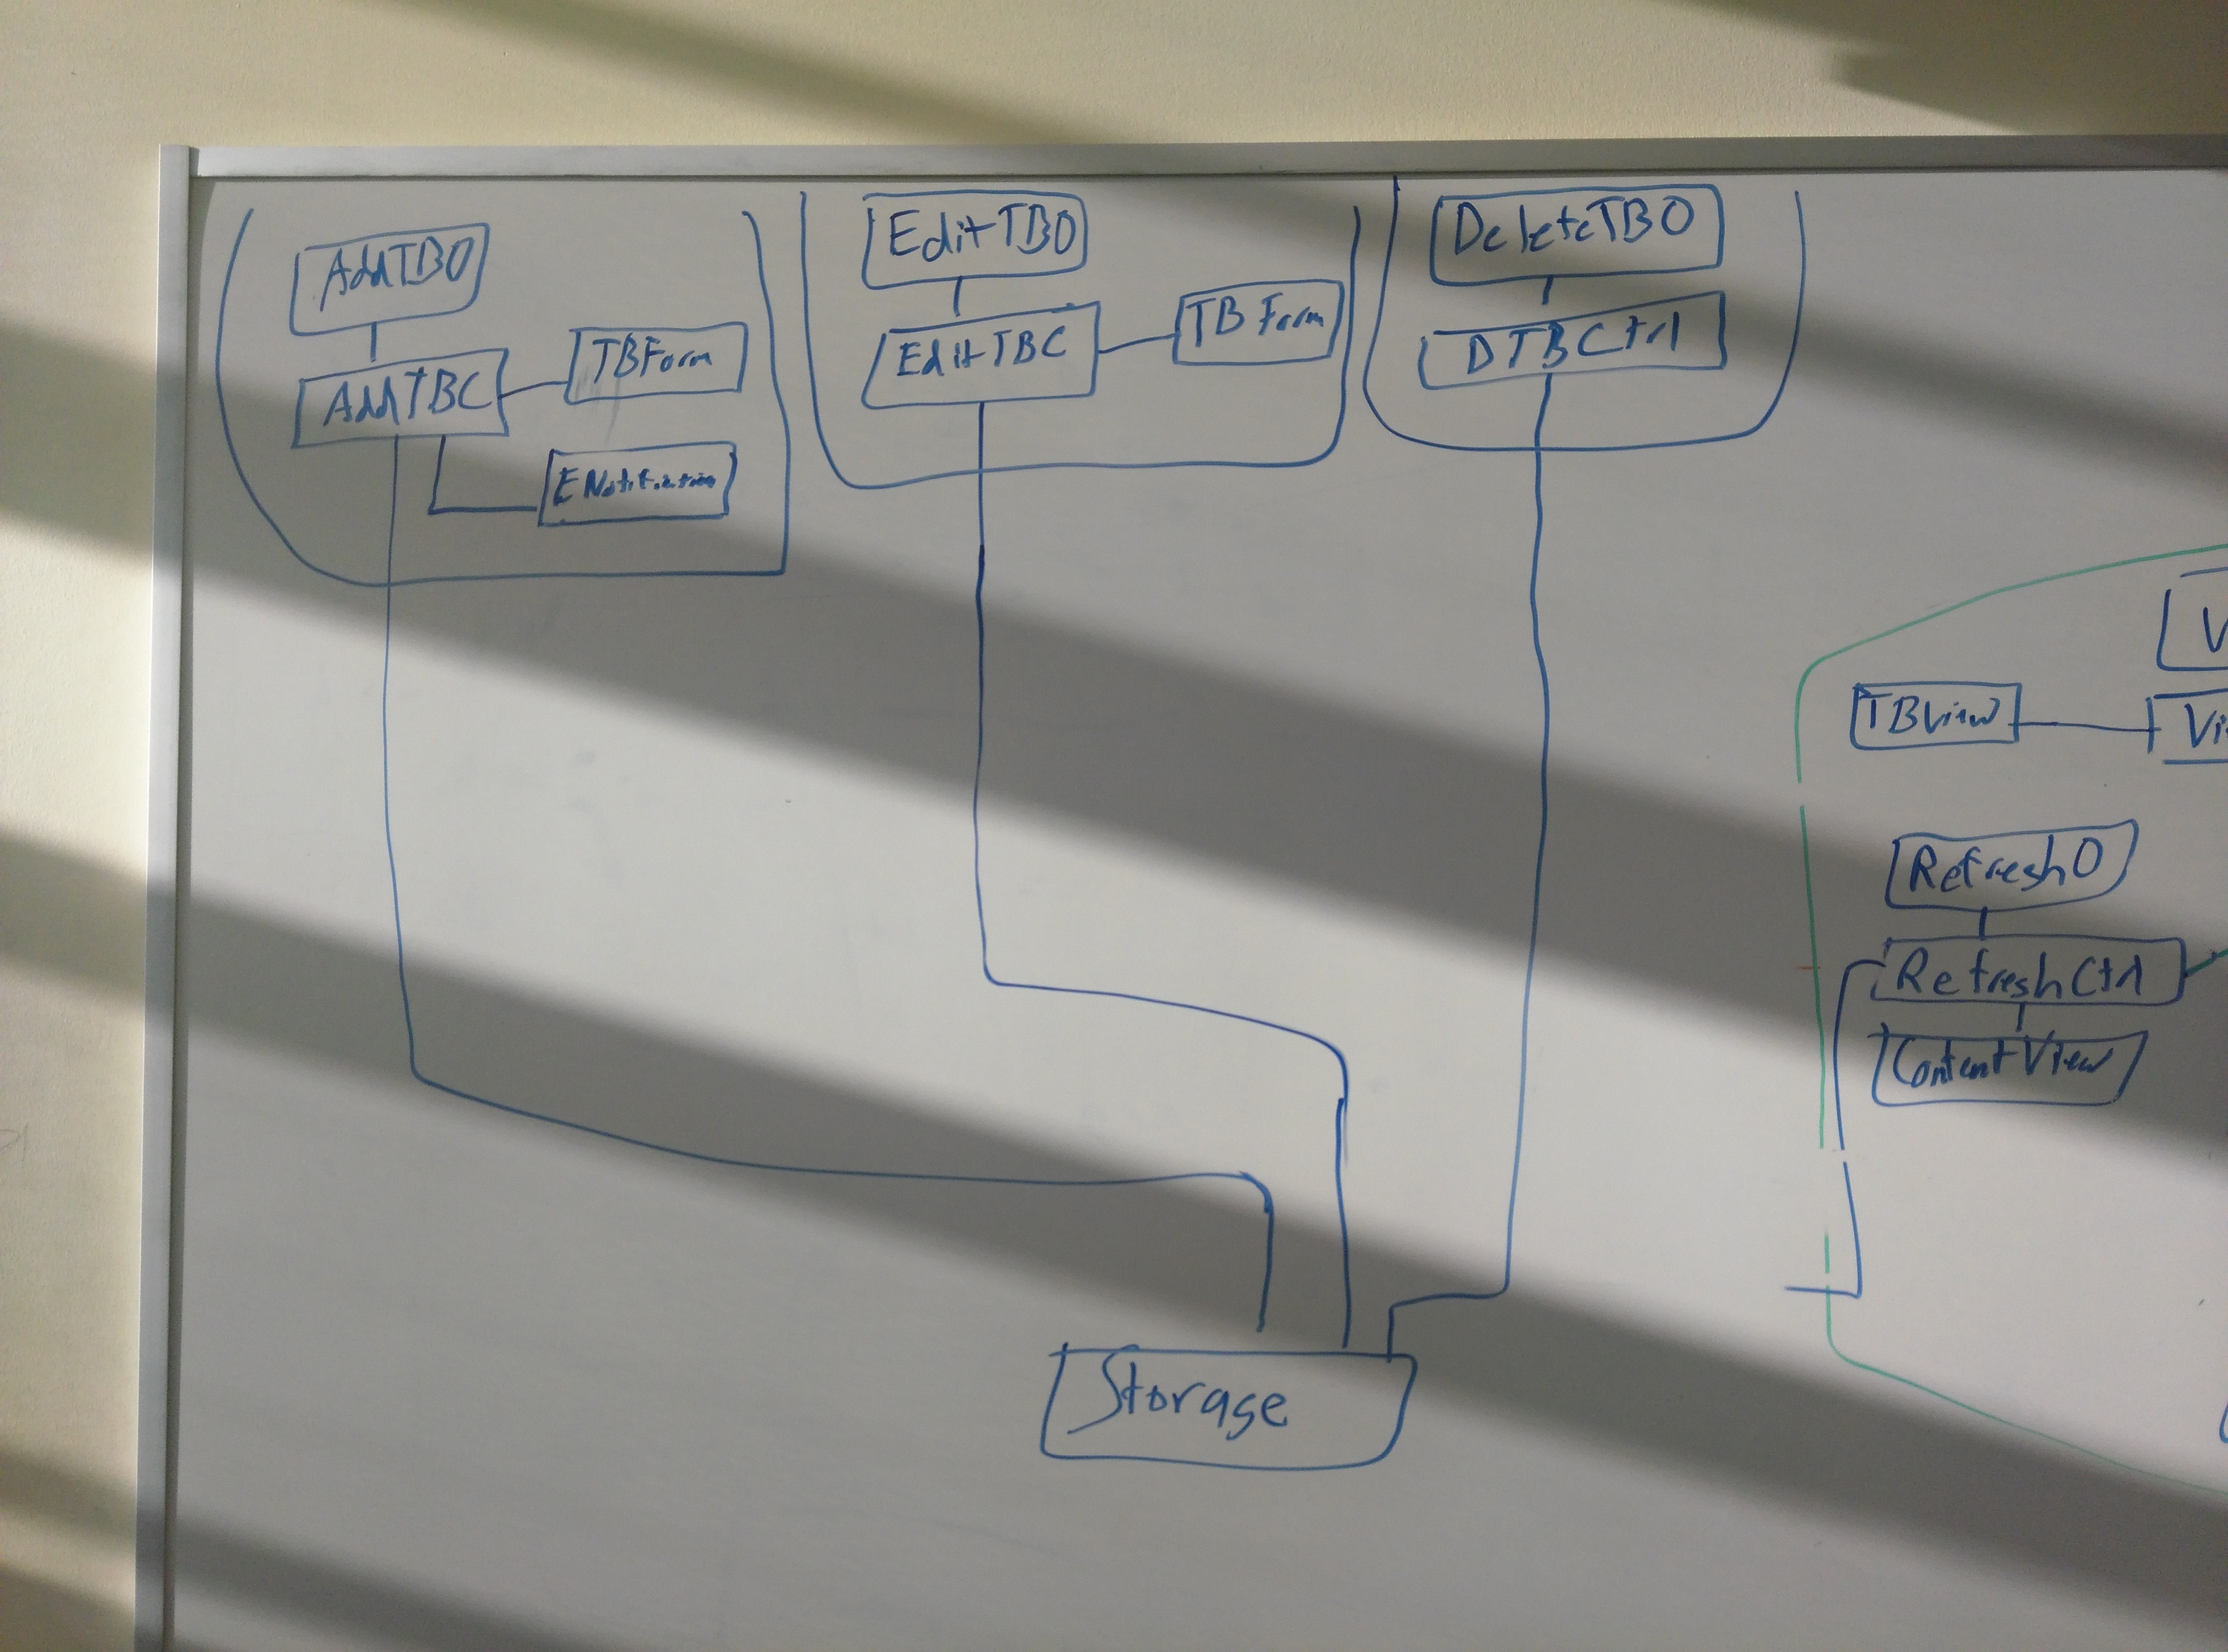 AddTBO
AddTBC
TBForm
ENotification
EditTBO
EditTBC
TB Form
DeleteTBO
DTBCtrl
TBView
RefreshO
RefreshCtrl
ContentView
Storage